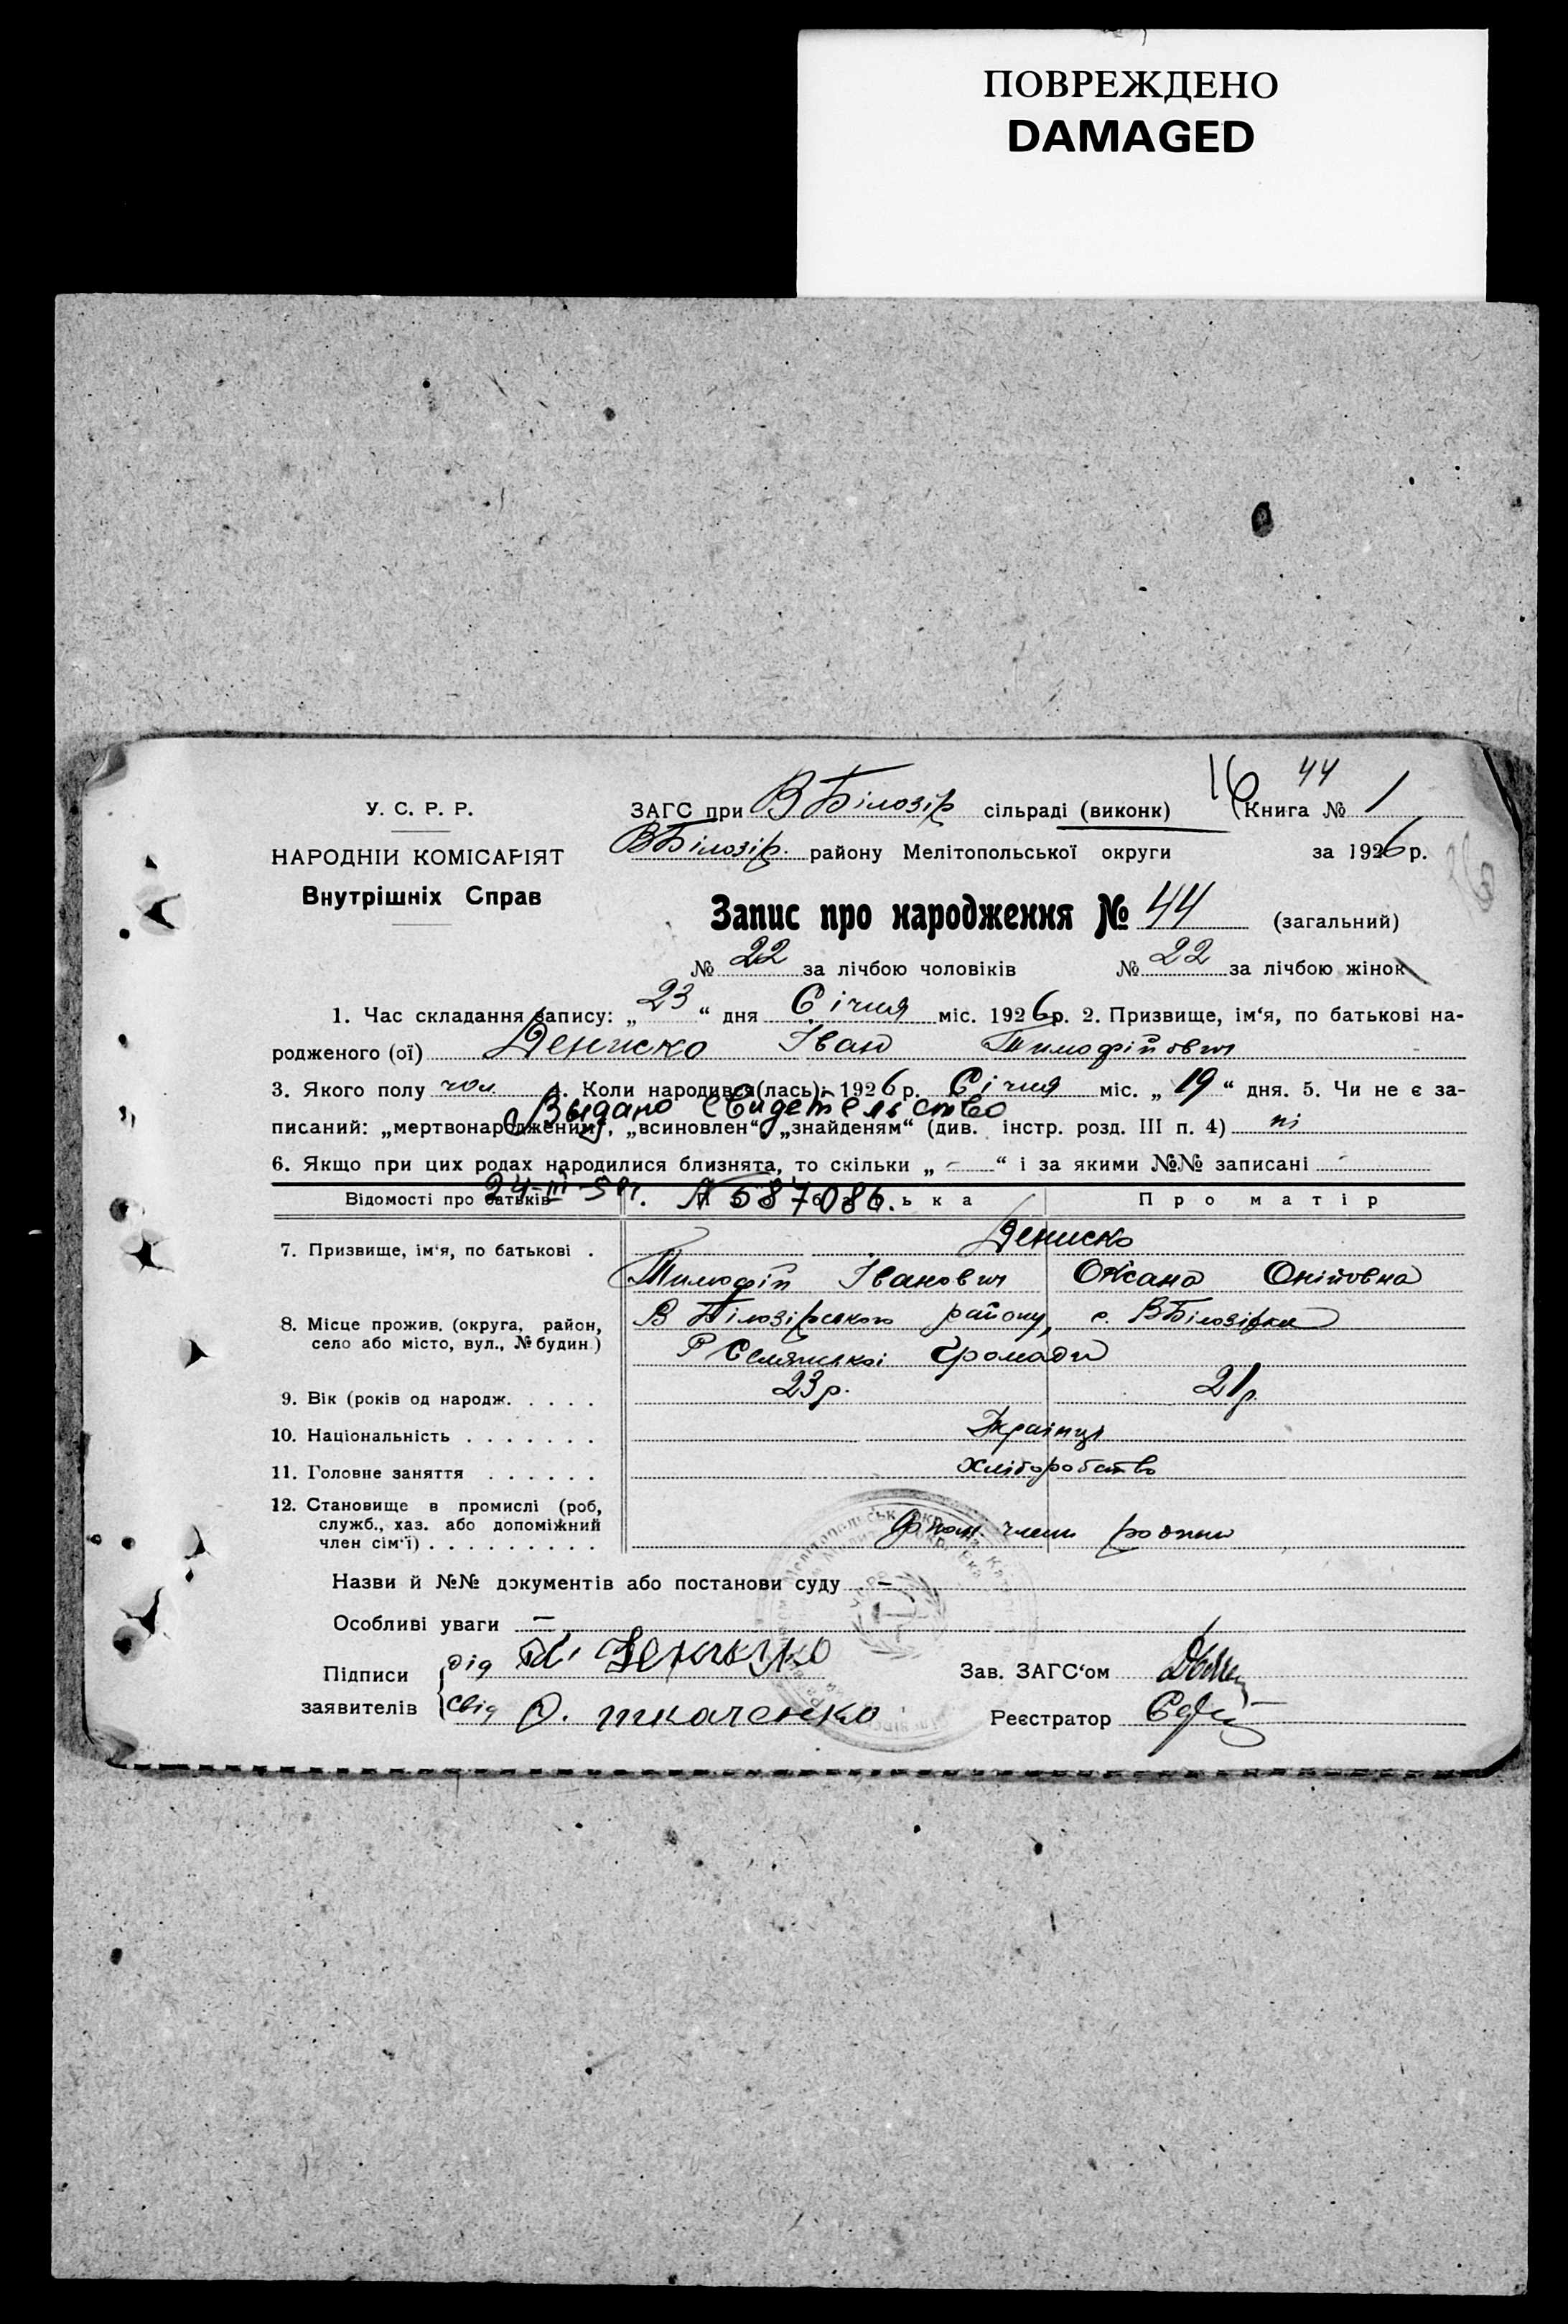 ПОВРЕЖДЕНО
DAMAGED
16 44
У. С. Р. Р.
ЗАГС при В Білозір сільраді (виконк) Книга № 1
НАРОДНІЙ КОМІСАРІЯТ
Внутрішніх Справ
ВБілозір. району Мелітопольської округи за 1926 р.
Запис про народження № 44 (загальний)
№ 22 за лічбою чоловіків № 22 за лічбою жінок
1. Час складання запису: „23“ дня Січня міс. 1926 р. 2. Призвище, ім‘я, по батькові на-
родженого (ої) Дениско Іван Тимофійович
3. Якого полу чол. 4. Коли народився(лась): 1926 р. Січня міс. „19“ дня. 5. Чи не є за-
Выдано свидетельство
писаний: „мертвонародженим“, „всиновлен“ „знайденям“ (див. інстр. розд. III п. 4) ні
6. Якщо при цих родах народилися близнята, то скільки „-“ і за якими №№ записані -
24-III-58г. № 687086.
Відомості про батьків Про батька Про матір
7. Призвище, ім‘я, по батькові . Дениско
Тимофій Іванович Оксана Онійовна
8. Місце прожив. (округа, район, В Білозірського району, с. ВБілозірка
село або місто, вул., № будин.) Р Селянської Громади
9. Вік (років од народж. . . . . 23 р. 21 р.
10. Національність . . . . . . . Українці
11. Головне заняття . . . . . . хліборобство
12. Становище в промислі (роб,
служб., хаз. або допоміжний член родини
член сім‘ї) . . . . . . . . .
Назви й №№ документів або постанови суду –
Особливі уваги –
Підписи дід Дениско Зав. ЗАГС‘ом
заявителів свід О. ткаченко Реєстратор